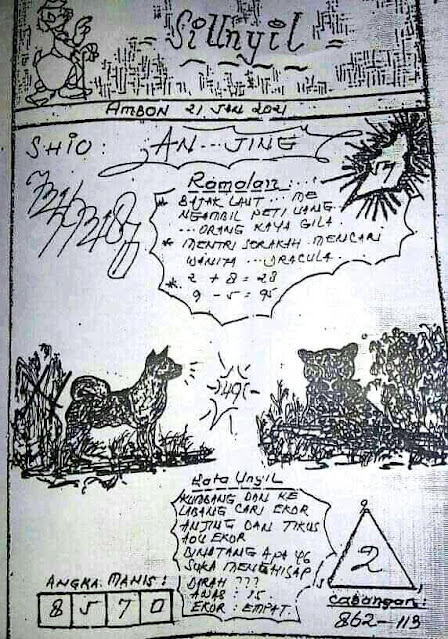 = Sillnyil =
AMBON 21 JAN 2021
SHIO : AN...JING
Ramalan...
* BAJAK LAUT ... ME
NGAMBIL PETI UANG
... ORANG KAYA GILA
* MENTRI SORAKAH MENCARI
WANITA ... DRACULA.
* 2 + 8 = 28
9 - 5 = 95
Kata Unyil
KUMBANG DAN KE
LABANG CARI EKOR
ANJING DAN TIKUS
ADU EKOR
BINATANG APA YG
SUKA MENGHISAP
DARAH ???
AWAS : 15
EKOR : EMPAT.
ANGKA MANIS :
8 5 7 0
9
2
Cabangan :
862 - 113